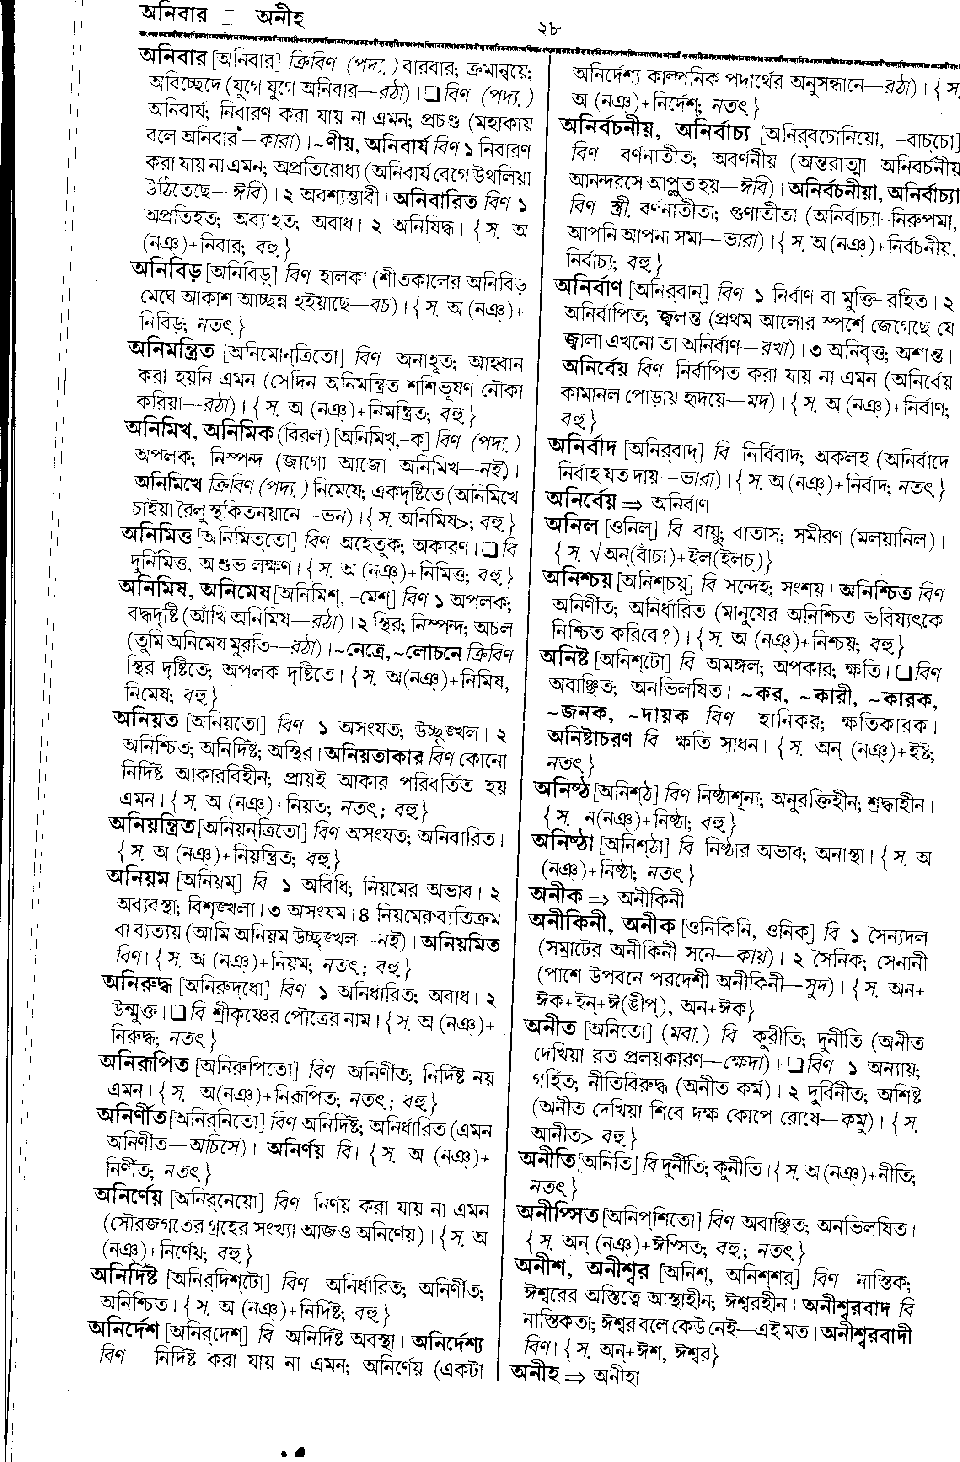 অনিবার – অনীহ
২৮
অনিবার [অনিবার্] ক্রিবিণ (পদ্য.) বারবার; ক্রমান্বয়ে;
অবিচ্ছেদে (যুগে যুগে অনিবার—রঠা)। ❑ বিণ (পদ্য.)
অনিবার্য; নিবারণ করা যায় না এমন; প্রচণ্ড (মহাকায়
বলে অনিবার—কারা)। ~ণীয়, অনিবার্য বিণ ১ নিবারণ
করা যায় না এমন; অপ্রতিরোধ্য (অনিবার্য বেগে উথলিয়া
উঠিতেছে—ঈবি)। ২ অবশ্যম্ভাবী। অনিবারিত বিণ ১
অপ্রতিহত; অব্যাহত; অবাধ। ২ অনিষিদ্ধ। { স. অ
(নঞ্)+নিবার; বহু.}
অনিবিড় [অনিবিড়্] বিণ হালকা (শীতকালের অনিবিড়
মেঘে আকাশ আচ্ছন্ন হইয়াছে—বচ)। { স. অ (নঞ্)+
নিবিড়; নতৎ}
অনিমন্ত্রিত [অনিমোন্‌ত্রিতো] বিণ অনাহূত; আহ্বান
করা হয়নি এমন (সেদিন অনিমন্ত্রিত শশিভূষণ নৌকা
করিয়া—রঠা)। { স. অ (নঞ্)+নিমন্ত্রিত; বহু.}
অনিমিখ, অনিমিক (বিরল) [অনিমিখ্,-ক্] বিণ (পদ্য.)
অপলক; নিস্পন্দ (জাগো আজো অনিমিখ—নই)।
অনিমিখে ক্রিবিণ (পদ্য.) নিমেষে; একদৃষ্টিতে (অনিমিখে
চাইয়া রৈলু স্থকিত নয়ানে -ভন)। { স. অনিমিষ>; বহু.}
অনিমিত্ত [অনিমিত্‌তো] বিণ অহেতুক; অকারণ। ❑ বি
দুর্নিমিত্ত, অশুভ লক্ষণ। { স. অ (নঞ্)+নিমিত্ত; বহু.}
অনিমিষ, অনিমেষ [অনিমিশ্, -মেশ্] বিণ ১ অপলক;
বদ্ধদৃষ্টি (আঁখি অনিমিষ—রঠা)। ২ স্থির; নিস্পন্দ; অচল
(তুমি অনিমেষ মুরতি—রঠা)। ~নেত্রে, ~লোচনে ক্রিবিণ
স্থির দৃষ্টিতে; অপলক দৃষ্টিতে। { স. অ(নঞ্)+নিমিষ,
নিমেষ; বহু.}
অনিয়ত [অনিয়তো] বিণ ১ অসংযত; উচ্ছৃঙ্খল। ২
অনিশ্চিত; অনির্দিষ্ট; অস্থির। অনিয়তাকার বিণ কোনো
নির্দিষ্ট আকারবিহীন; প্রায়ই আকার পরিবর্তিত হয়
এমন। { স. অ (নঞ্)+নিয়ত; নতৎ; বহু.}
অনিয়ন্ত্রিত [অনিয়ন্‌ত্রিতো] বিণ অসংযত; অনিবারিত।
{ স. অ (নঞ্)+নিয়ন্ত্রিত; বহু.}
অনিয়ম [অনিয়ম্] বি ১ অবিধি; নিয়মের অভাব। ২
অব্যবস্থা; বিশৃঙ্খলা। ৩ অসংযম। ৪ নিয়মের ব্যতিক্রম
বা ব্যত্যয় (আমি অনিয়ম উচ্ছৃঙ্খল -নই)। অনিয়মিত
বিণ। { স. অ (নঞ্)+নিয়ম; নতৎ; বহু.}
অনিরুদ্ধ [অনিরুদ্‌ধো] বিণ ১ অনিধারিত; অবাধ। ২
উন্মুক্ত। ❑ বি শ্রীকৃষ্ণের পৌত্রের নাম। { স. অ (নঞ্)+
নিরুদ্ধ; নতৎ}
অনিরূপিত [অনিরুপিতো] বিণ অনির্ণীত; নির্দিষ্ট নয়
এমন। { স. অ(নঞ্)+নিরূপিত; নতৎ; বহু.}
অনির্ণীত [অনির্‌নিতো] বিণ অনির্দিষ্ট; অনির্ধারিত (এমন
অনির্ণীত—অচিসে)। অনির্ণয় বি। { স. অ (নঞ্)+
নির্ণীত; নতৎ}
অনির্ণেয় [অনির্‌নেয়ো] বিণ নির্ণয় করা যায় না এমন
(সৌরজগতের গ্রহের সংখ্যা আজও অনির্ণেয়)। { স. অ
(নঞ্)+নির্ণেয়; বহু.}
অনির্দিষ্ট [অনির্‌দিশ্‌টো] বিণ অনির্ধারিত; অনির্ণীত;
অনিশ্চিত। { স. অ (নঞ্)+নির্দিষ্ট; বহু.}
অনির্দেশ [অনির্‌দেশ্] বি অনির্দিষ্ট অবস্থা। অনির্দেশ্য
বিণ নির্দিষ্ট করা যায় না এমন; অনির্ণেয় (একটা
অনির্দেশ্য কাল্পনিক পদার্থের অনুসন্ধানে—রঠা)। { স.
অ (নঞ্)+নির্দেশ; নতৎ}
অনির্বচনীয়, অনির্বাচ্য [অনির্‌বচোনিয়ো, -বাচ্‌চো]
বিণ বর্ণনাতীত; অবর্ণনীয় (অন্তরাত্মা অনির্বচনীয়
আনন্দরসে আপ্লুত হয়—ঈবি)। অনির্বচনীয়া, অনির্বাচ্যা
বিণ স্ত্রী. বর্ণনাতীতা; গুণাতীতা (অনির্বাচ্যা নিরুপমা,
আপনি আপনা সমা—ভারা)। { স. অ (নঞ্)+নির্বচনীয়,
নির্বাচ্য; বহু.}
অনির্বাণ [অনির্‌বান্] বিণ ১ নির্বাণ বা মুক্তি-রহিত। ২
অনির্বাপিত; জ্বলন্ত (প্রথম আলোর স্পর্শে জেগেছে যে
জ্বালা এখনো তা অনির্বাণ—রখা)। ৩ অনিবৃত্ত; অশান্ত।
অনির্বেয় বিণ নির্বাপিত করা যায় না এমন (অনির্বেয়
কামানল পোড়ায় হৃদয়ে—মদ)। { স. অ (নঞ্)+নির্বাণ;
বহু.}
অনির্বাদ [অনির্‌বাদ্] বি নির্বিবাদ; অকলহ (অনির্বাদে
নির্বাহ যত দায় -ভারা)। { স. অ (নঞ্)+নির্বাদ; নতৎ}
অনির্বেয় ⇒ অনির্বাণ
অনিল [ওনিল্] বি বায়ু; বাতাস; সমীরণ (মলয়ানিল)।
{ স. √অন্(বাঁচা)+ইল(ইলচ্)}
অনিশ্চয় [অনিশ্‌চয়্] বি সন্দেহ; সংশয়। অনিশ্চিত বিণ
অনির্ণীত; অনির্ধারিত (মানুষের অনিশ্চিত ভবিষ্যৎকে
নিশ্চিত করিবে?)। { স. অ (নঞ্)+নিশ্চয়; বহু.}
অনিষ্ট [অনিশ্‌টো] বি অমঙ্গল; অপকার; ক্ষতি। ❑ বিণ
অবাঞ্ছিত; অনভিলষিত। ~কর, ~কারী, ~কারক,
~জনক, ~দায়ক বিণ হানিকর; ক্ষতিকারক।
অনিষ্টাচরণ বি ক্ষতি সাধন। { স. অন্ (নঞ্)+ইষ্ট;
নতৎ}
অনিষ্ঠ [অনিশ্‌ঠ] বিণ নিষ্ঠাশূন্য; অনুরক্তিহীন; শ্রদ্ধাহীন।
{ স. ন(নঞ্)+নিষ্ঠা; বহু.}
অনিষ্ঠা [অনিশ্‌ঠা] বি নিষ্ঠার অভাব; অনাস্থা। { স. অ
(নঞ্)+নিষ্ঠা; নতৎ}
অনীক ⇒ অনীকিনী
অনীকিনী, অনীক [ওনিকিনি, ওনিক্] বি ১ সৈন্যদল
(সম্রাটের অনীকিনী সনে—কায়)। ২ সৈনিক; সেনানী
(পাশে উপবনে পরদেশী অনীকিনী—সুদ)। { স. অন+
ঈক+ইন্+ঈ(ঙীপ্), অন+ঈক}
অনীত [অনিতো] (মবা.) বি কুরীতি; দুর্নীতি (অনীত
দেখিয়া রত প্রলয়কারণ—ক্ষেদা)। ❑ বিণ ১ অন্যায়;
গর্হিত; নীতিবিরুদ্ধ (অনীত কর্ম)। ২ দুর্বিনীত; অশিষ্ট
(অনীত দেখিয়া শিবে দক্ষ কোপে রোষে—কমু)। { স.
আনীত> বহু.}
অনীতি [অনিতি] বি দুর্নীতি; কুনীতি। { স. অ (নঞ্)+নীতি;
নতৎ}
অনীপ্সিত [অনিপ্‌শিতো] বিণ অবাঞ্ছিত; অনভিলষিত।
{ স. অন্ (নঞ্)+ঈপ্সিত; বহু.; নতৎ}
অনীশ, অনীশ্বর [অনিশ্, অনিশ্‌শর্] বিণ নাস্তিক;
ঈশ্বরের অস্তিত্বে আস্থাহীন; ঈশ্বরহীন। অনীশ্বরবাদ বি
নাস্তিকতা; ঈশ্বর বলে কেউ নেই—এই মত। অনীশ্বরবাদী
বিণ। { স. অন্+ঈশ, ঈশ্বর}
অনীহ ⇒ অনীহা